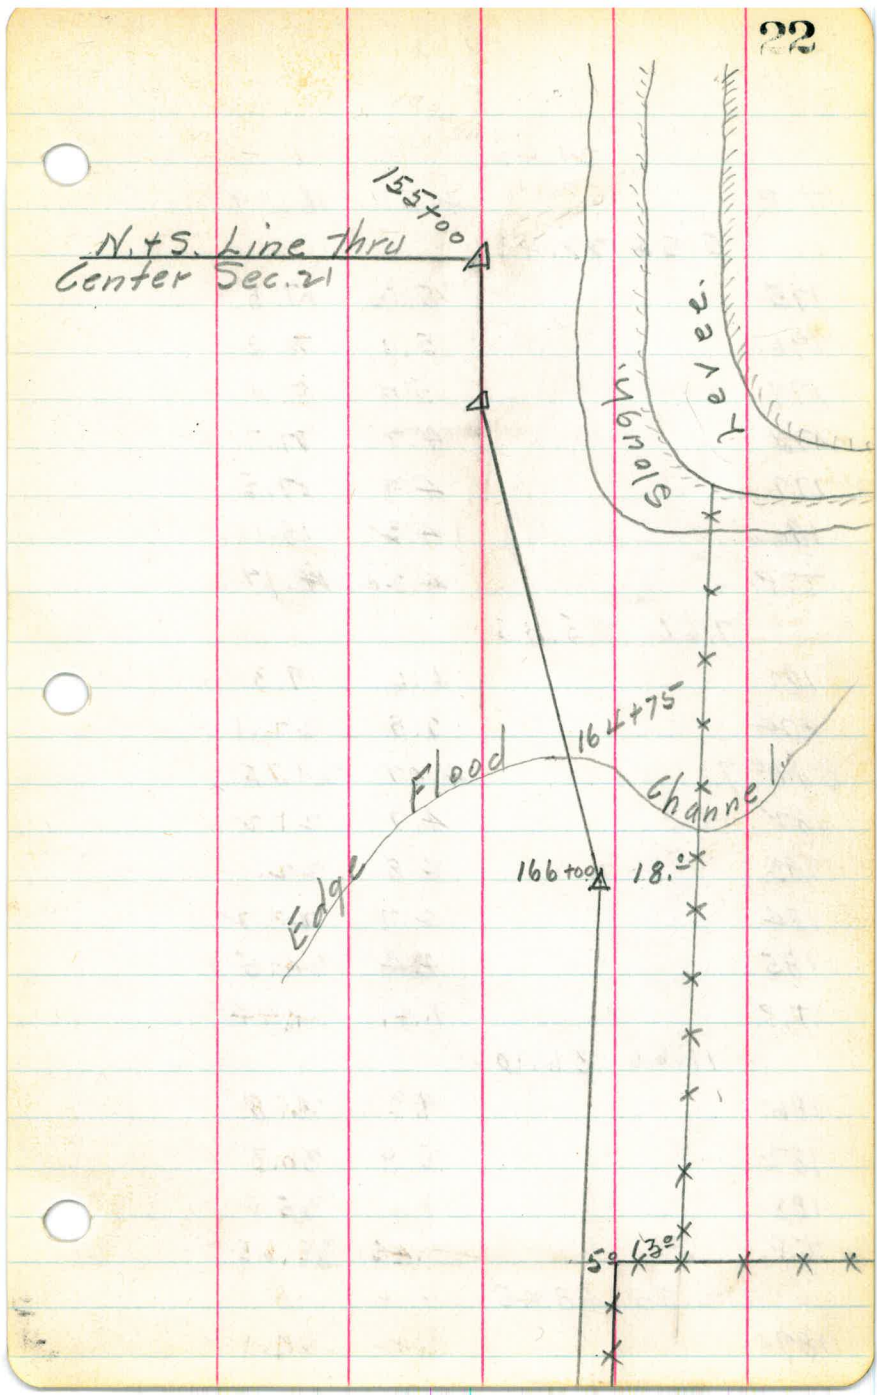 22
155+00
N.+S. Line Thru
Center Sec. 21
Levee.
Slough.
164+75
Edge Flood Channel.
166+00
18.0
5.0
13.0